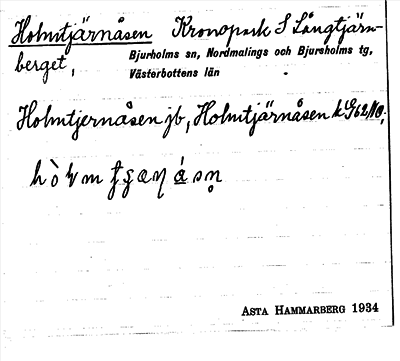 Holmtjärnåsen Kronopark S Långtjärn-
berget,
Bjurholms sn, Nordmalings och Bjurholms tg,
Västerbottens län
Holmtjernåsen jb, Holmtjärnåsen k
Asta Hammarberg 1934